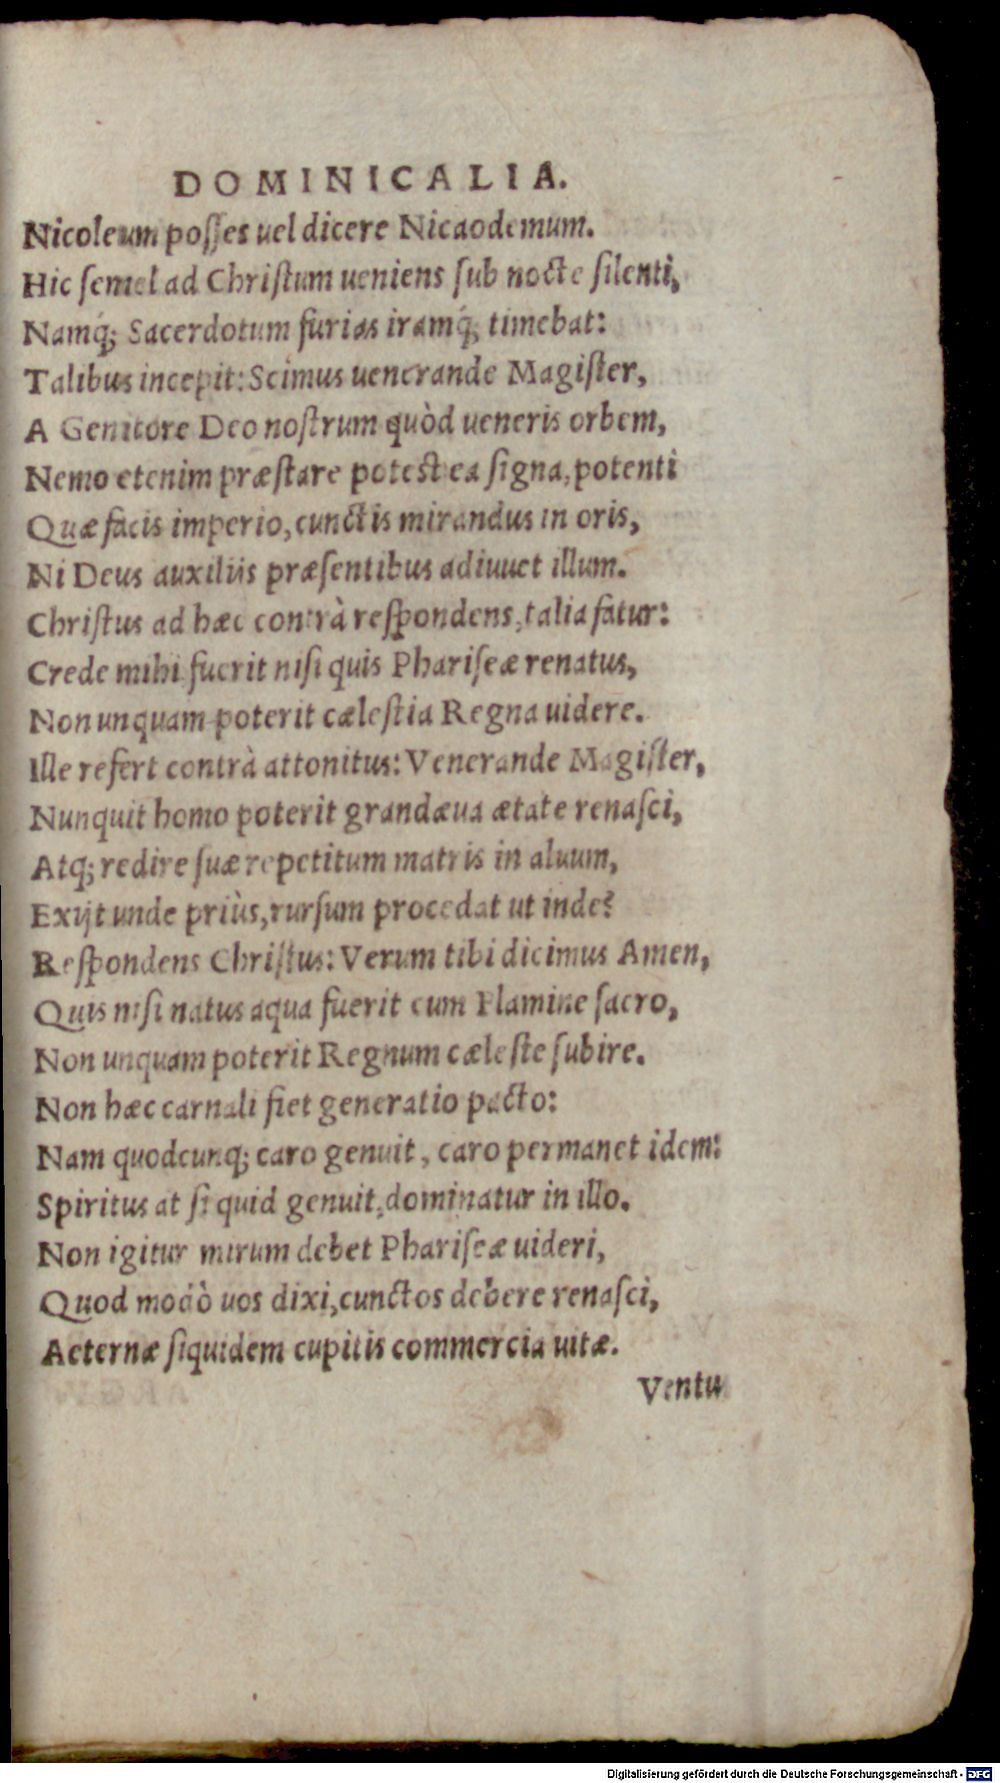 DOMINICALIA.
Nicoleum poſſes uel dicere Nicaodemum.
Hic ſemel ad Chriſtum ueniens ſub nocte ſilenti,
Namq́; Sacerdotum furias iramq́; timebat:
Talibus incepit: Scimus uenerande Magiſter,
A Genitore Deo noſtrum quòd ueneris orbem,
Nemo etenim præſtare potest ea ſigna, potenti
Quæ facis imperio, cunctis mirandus in oris,
Ni Deus auxiliis præſentibus adiuuet illum.
Chriſtus ad hæc contrà reſpondens, talia fatur:
Crede mihi fuerit niſi quis Phariſeæ renatus,
Non unquam poterit cæleſtia Regna uidere.
Ille refert contrà attonitus: Venerande Magiſter,
Nunquit homo poterit grandæua ætate renaſci,
Atq; redire ſuæ repetitum matris in aluum,
Exijt unde priùs, rurſum procedat ut inde?
Reſpondens Chriſtus: Verum tibi dicimus Amen,
Quis niſi natus aqua fuerit cum Flamine ſacro,
Non unquam poterit Regnum cæleſte ſubire.
Non hæc carnali fiet generatio pacto:
Nam quodcunq; caro genuit, caro permanet idem:
Spiritus at ſi quid genuit, dominatur in illo.
Non igitur mirum debet Phariſeæ uideri,
Quod modò uos dixi, cunctos debere renaſci,
Aeternæ ſiquidem cupitis commercia uitæ.
Ventu
Digitalisierung gefördert durch die Deutsche Forschungsgemeinschaft - DFG